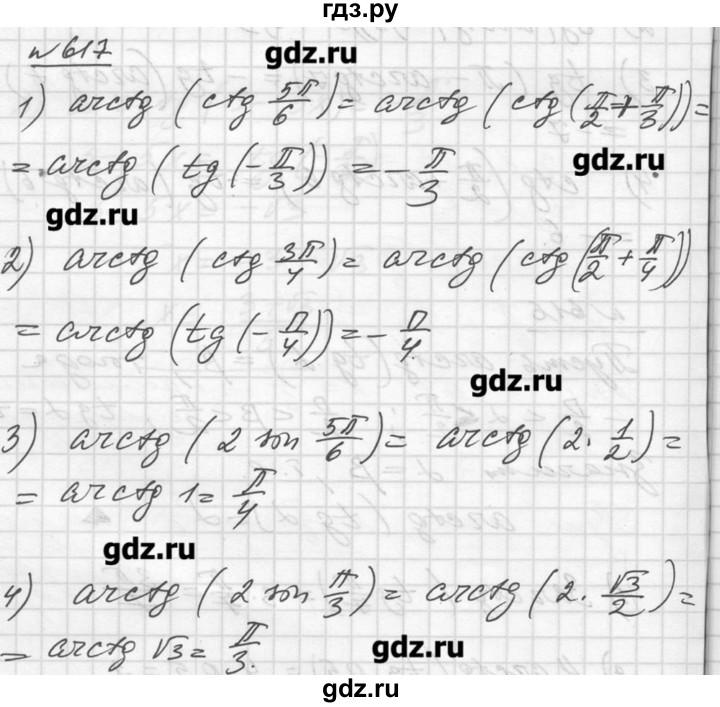 гдз.ру
№617
gdz.ru
1) arctg (ctg 5π/6) = arctg (ctg (π/2 + π/3)) =
= arctg (tg (-π/3)) = -π/3
gdz.ru
gdz.ru
2) arctg (ctg 3π/4) = arctg (ctg (π/2 + π/4))
= arctg (tg (-π/4)) = -π/4
gdz.ru
3) arctg (2 sin 5π/6) = arctg (2 · 1/2) =
= arctg 1 = π/4
gdz.ru
4) arctg (2 sin π/3) = arctg (2 · √3/2) =
= arctg √3 = π/3.
gdz.ru
gdz.ru